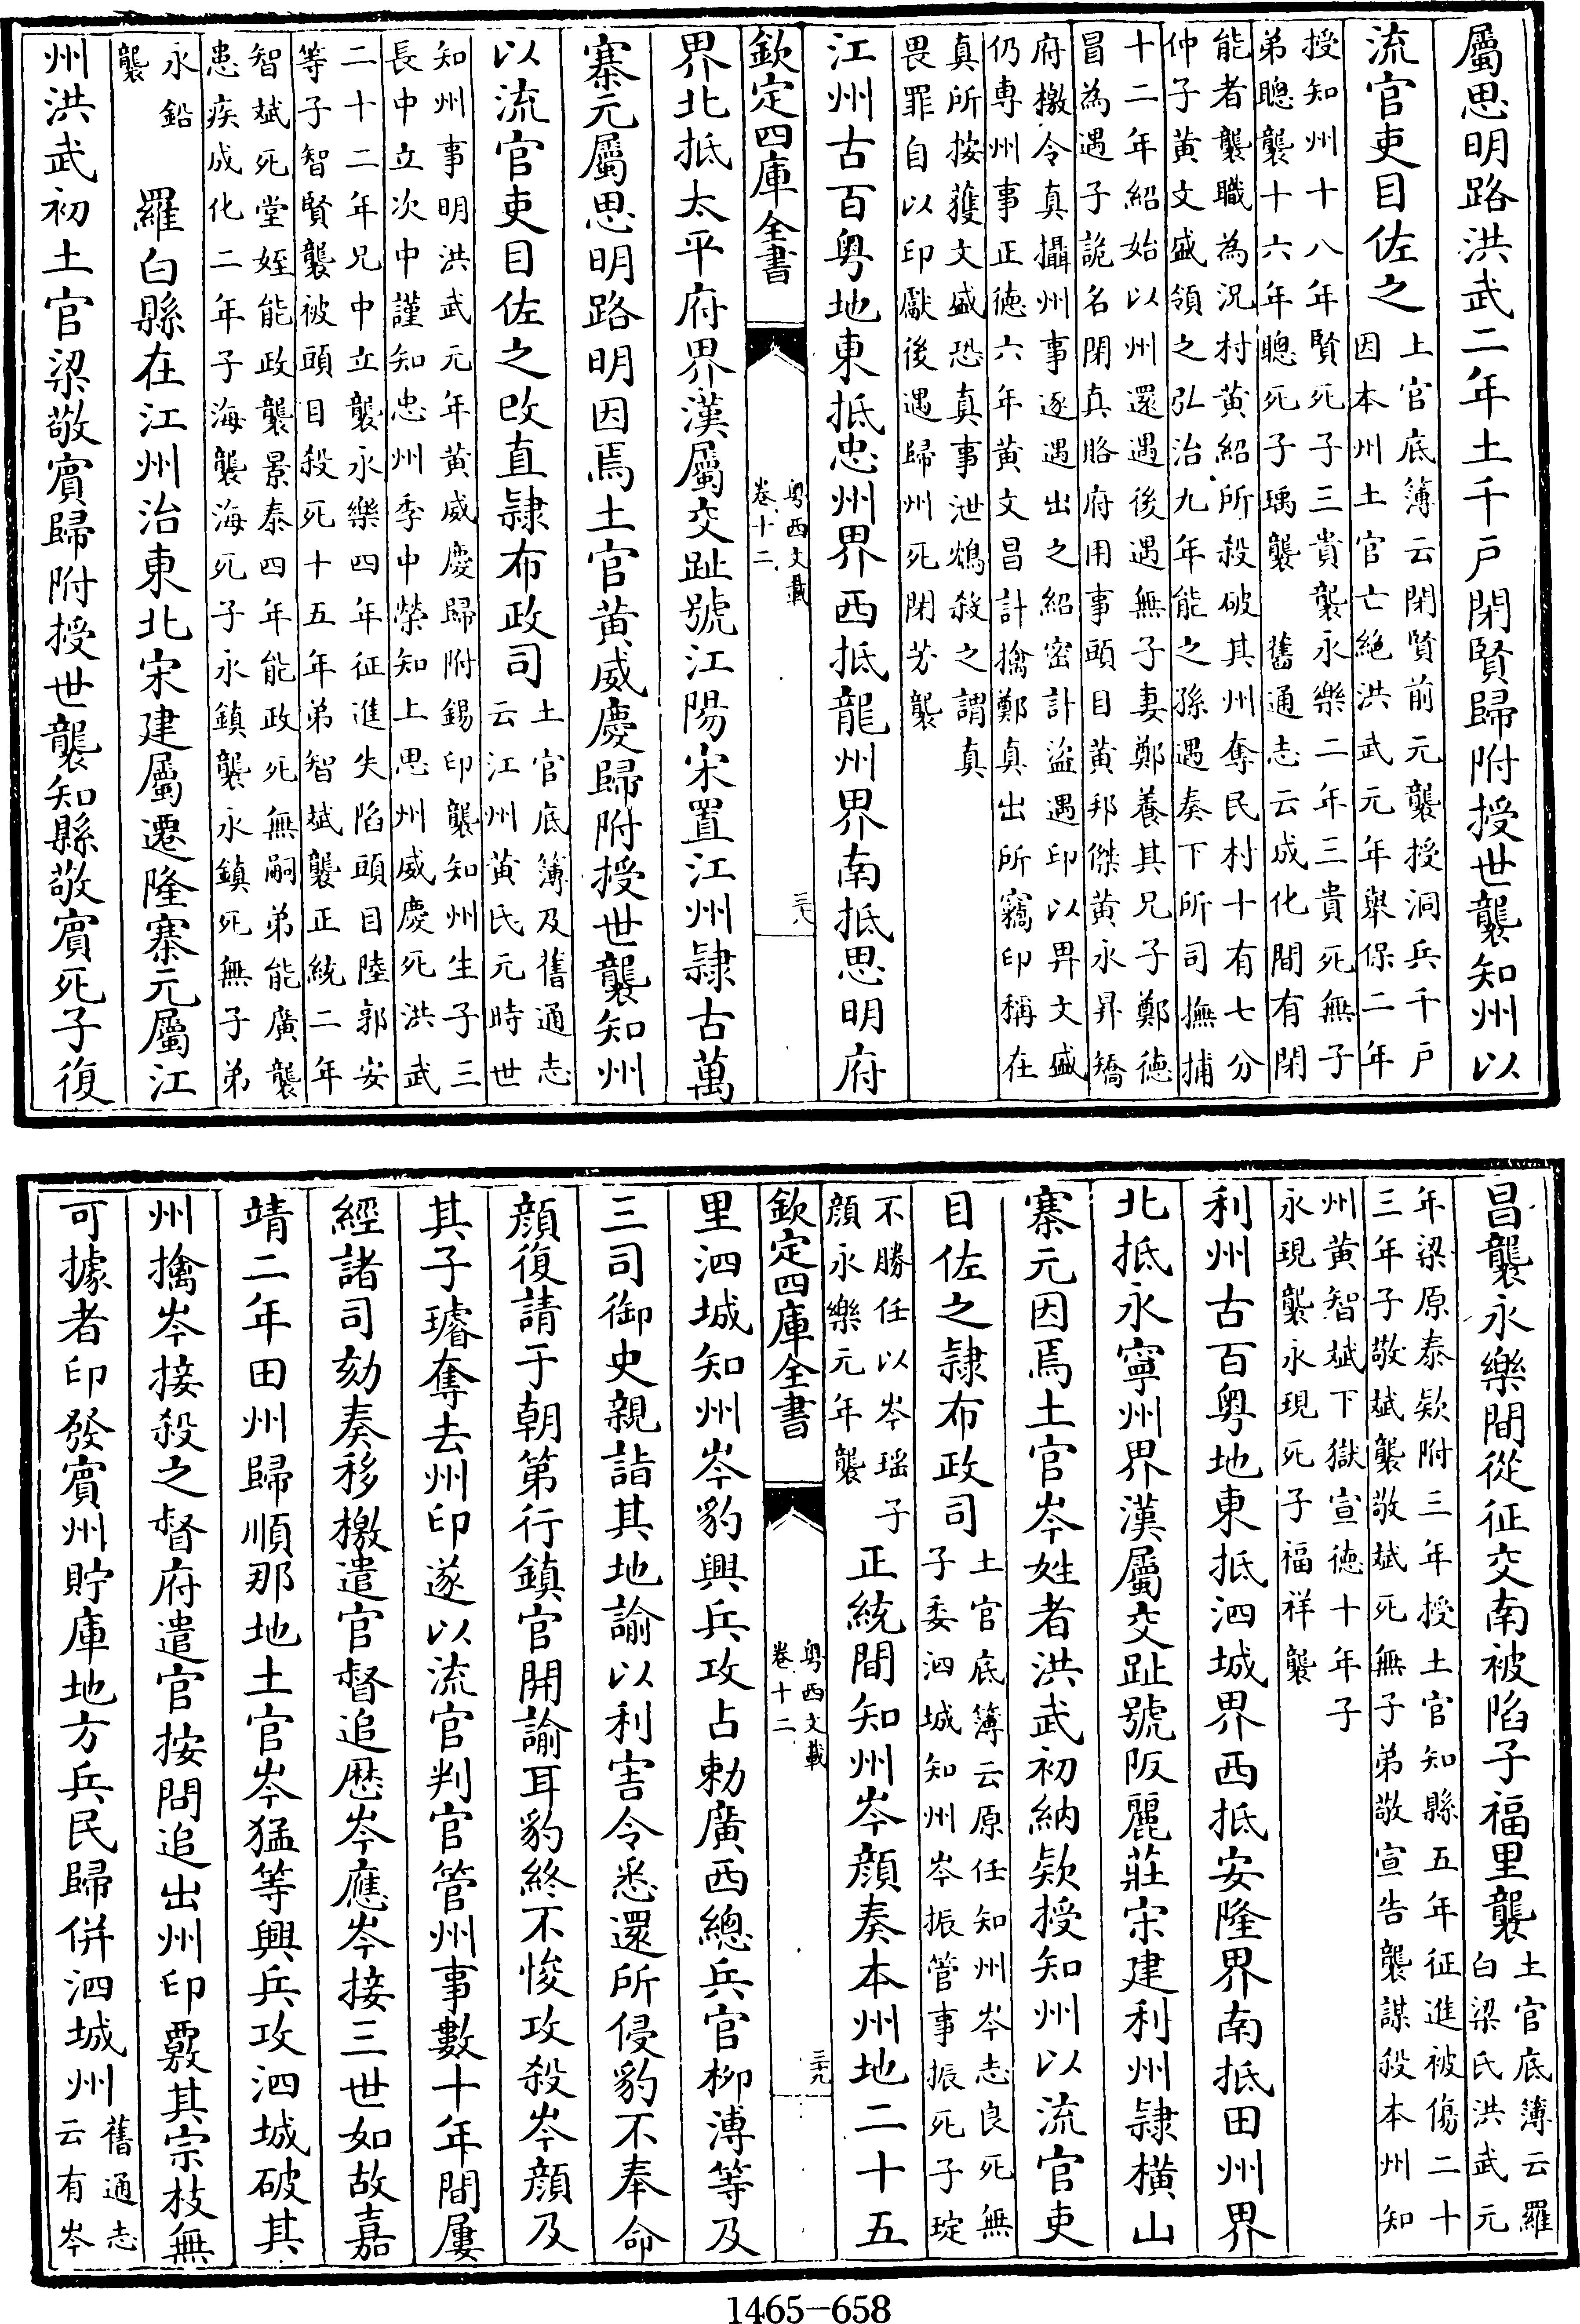 屬思明路洪武二年土千戶閉賢歸附授世襲知州以
流官吏目佐之
土官底簿云閉賢前元襲授洞兵千戶
因本州土官亡絕洪武元年舉保二年
授知州十八年賢死子三貴襲永樂二年三貴死無子
弟聰襲十六年聰死子瑀襲　舊通志云成化間有閉
能者襲職為況村黃紹所殺破其州奪民村十有七分
仲子黃文盛領之弘治九年能之孫遇奏下所司撫捕
十二年紹始以州還遇後遇無子妻鄭養其兄子鄭德
昌為遇子詭名閉真賂府用事頭目黃邦傑黃永昇矯
府檄令真攝州事逐遇出之紹密計盜遇印以畀文盛
仍専州事正德六年黃文昌計擒鄭真出所竊印稱在
真所按獲文盛恐真事泄鴆殺之謂真
畏罪自以印獻後遇歸州死閉芳襲
江州古百粤地東抵忠州界西抵龍州界南抵思明府
欽定四庫全書
粤西文載
卷十二
三十八
界北抵太平府界漢屬交趾號江陽宋置江州隷古萬
寨元屬思明路明因焉土官黃威慶歸附授世襲知州
以流官吏目佐之改直隷布政司
土官底簿及舊通志
云江州黃氏元時世
知州事明洪武元年黃威慶歸附錫印襲知州生子三
長中立次中謹知忠州季中榮知上思州威慶死洪武
二十二年兄中立襲永樂四年征進失陷頭目陸郭安
等子智賢襲被頭目殺死十五年弟智斌襲正統二年
智斌死堂姪能政襲景泰四年能政死無嗣弟能廣襲
患疾成化二年子海襲海死子永鎮襲永鎮死無子弟
永鉛
襲
羅白縣在江州治東北宋建屬遷隆寨元屬江
州洪武初土官梁敬賓歸附授世襲知縣敬賓死子復
昌襲永樂間從征交南被陷子福里襲
土官底簿云羅
白梁氏洪武元
年梁原泰欵附三年授土官知縣五年征進被傷二十
三年子敬斌襲敬斌死無子弟敬宣告襲謀殺本州知
州黃智斌下獄宣德十年子
永現襲永現死子福祥襲
利州古百粤地東抵泗城界西抵安隆界南抵田州界
北抵永寧州界漢屬交趾號阪麗莊宋建利州隷橫山
寨元因焉土官岑姓者洪武初納欵授知州以流官吏
目佐之隷布政司
土官底簿云原任知州岑志良死無
子委泗城知州岑振管事振死子琔
不勝任以岑瑤子
顏永樂元年襲
正統間知州岑顏奏本州地二十五
欽定四庫全書
粤西文載
卷十二
三十九
里泗城知州岑豹興兵攻占勅廣西總兵官柳溥等及
三司御史親詣其地諭以利害令悉還所侵豹不奉命
顏復請于朝第行鎮官開諭耳豹終不悛攻殺岑顏及
其子璿奪去州印遂以流官判官管州事數十年間屢
經諸司劾奏移檄遣官督追歷岑應岑接三世如故嘉
靖二年田州歸順那地土官岑猛等興兵攻泗城破其
州擒岑接殺之督府遣官按問追出州印覈其宗枝無
可據者印發賓州貯庫地方兵民歸併泗城州
舊通志
云有岑
1465-658